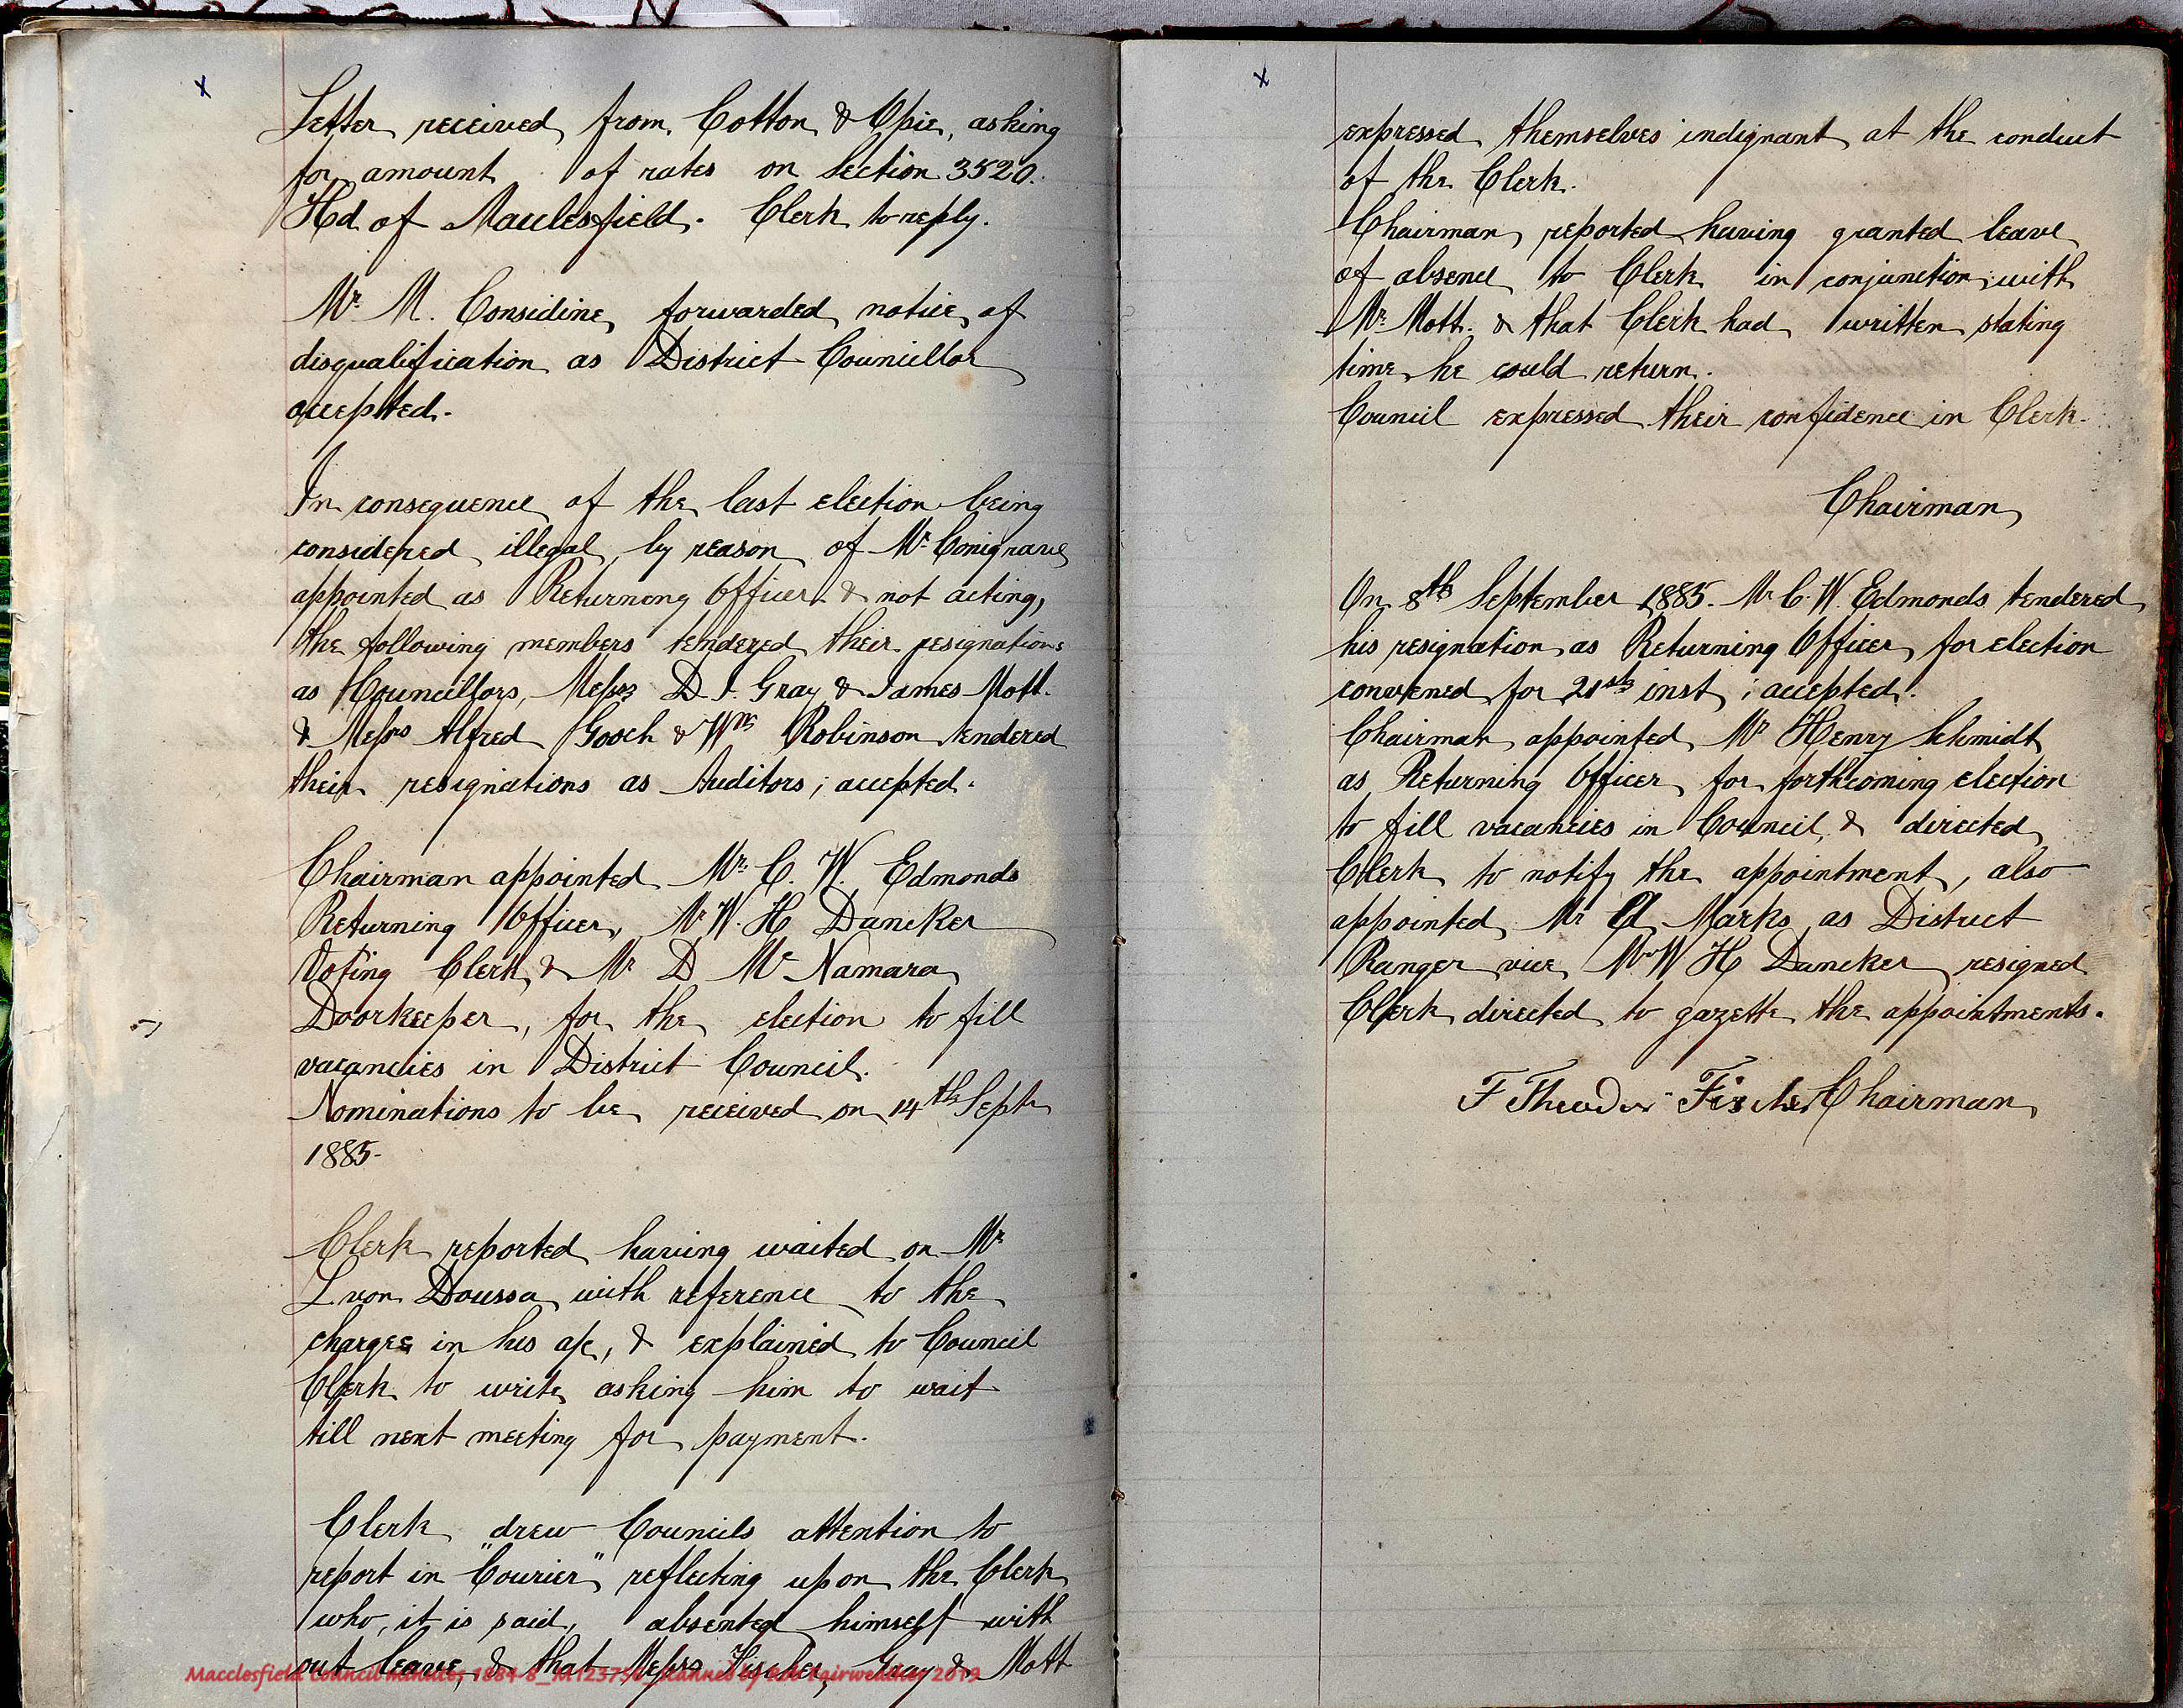 x
Letter received from Cotton & Opie, asking
for amount of rates on Section 3520.
Hd of Macclesfield. Clerk to reply.
Mr. M. Considine forwarded notice of
disqualification as District Councillor
accepted.
In consequence of the last election being
considered illegal by reason of Mr. Conigrave
appointed as Returning Officer & not acting,
the following members tendered their resignations
as Councillors, Messrs D. F. Gray & James Mott.
& Messrs Alfred Gooch & Wm Robinson tendered
their resignations as Auditors; accepted.
Chairman appointed Mr. C. W. Edmonds
Returning Officer, Mr W. H Dancker
Voting Clerk, & Mr D McNamara
Doorkeeper, for the election to fill
vacancies in District Council.
Nominations to be received on 14th Septr
1885-
Clerk reported having waited on Mr
L von Doussa with reference to the
charges in his a/c, & explained to Council
Clerk to write asking him to wait
till next meeting for payment.
Clerk drew Councils attention to
report in "Courier" reflecting upon the Clerk
who, it is said, absented himself with
out leave, & that Messrs Fischer, Gray & Mott
Macclesfield Council Minutes 1884-8_scanned by Fairweather 2019
x
expressed themselves indignant at the conduct
of the Clerk.
Chairman reported having granted leave
of absence to Clerk in conjunction with
Mr. Mott. & that Clerk had written stating
time he could return.
Council expressed their confidence in Clerk.
Chairman
On 8th September 1885. Mr C. W. Edmonds tendered
his resignation as Returning Officer for election
convened for 21st inst; accepted.
Chairman appointed Mr Henry Schmidt
as Returning Officer for forthcoming election
to fill vacancies in Council, & directed
Clerk to notify the appointment, also
appointed Mr A Marks as District
Ranger vice Mr W H Dancker resigned
Clerk directed to gazette the appointments.
F Theodor Fischer Chairman